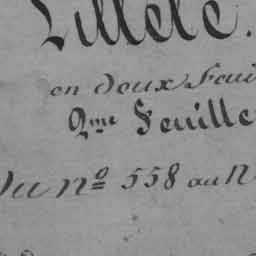 Lillele.
en deux Feui
2me Feuille
Du No 558 au N